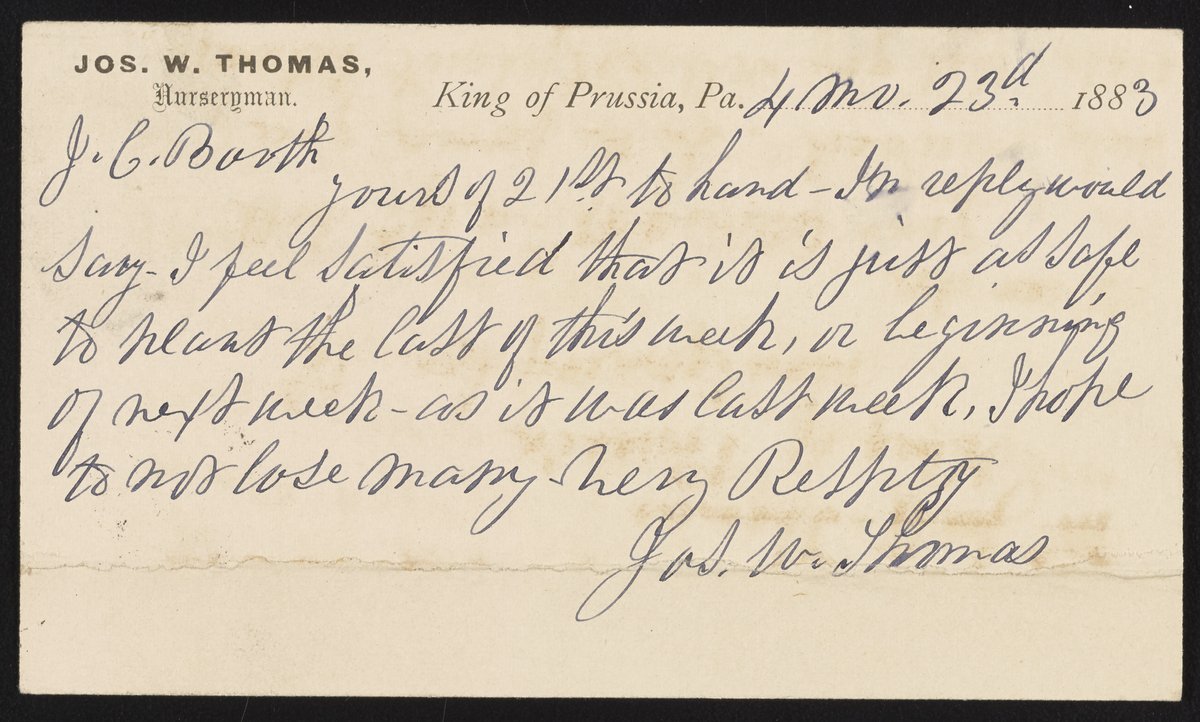 JOS. W. THOMAS,
Nurseryman.
King of Prussia, Pa. 4 Mo. 23d. 1883
J. C. Booth
yours of 21st to hand - In reply would
say - I feel satisfied that it is just as safe
to plant the last of this week, or beginning
of next week - as it was last week. I hope
to not lose many - Very Respfly
Jos. W. Thomas